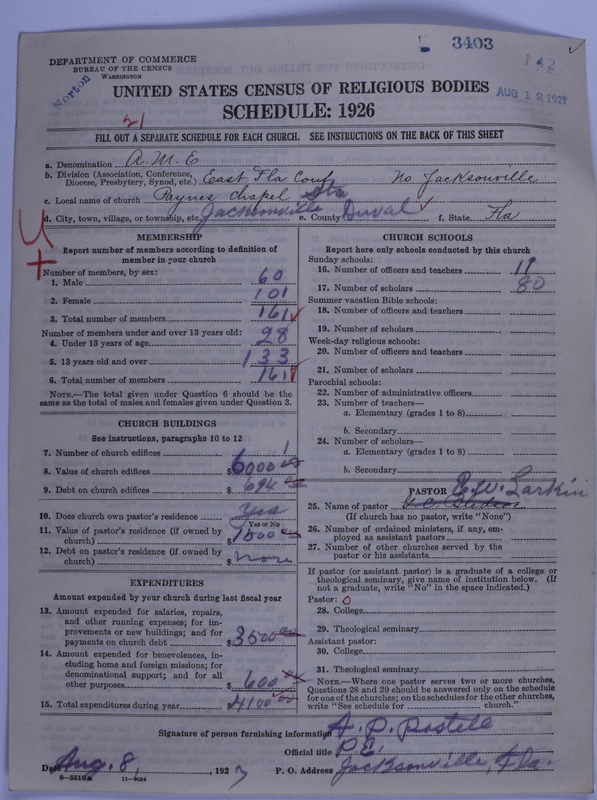 3403
DEPARTMENT OF COMMERCE
BUREAU OF THE CENSUS
WASHINGTON
Norton
142
AUG 12 1927
UNITED STATES CENSUS OF RELIGIOUS BODIES
SCHEDULE: 1926
21
FILL OUT A SEPARATE SCHEDULE FOR EACH CHURCH. SEE INSTRUCTIONS ON THE BACK OF THIS SHEET
a. Denomination A.M.E
b. Division (Association, Conference, Diocese, Presbytery, Synod, etc.) East Fla Conf No Jacksonville
c. Local name of church Paynes Chapel Sta
d. City, town, village, or township, etc. Jacksonville e. County Duval f. State Fla
MEMBERSHIP
Report number of members according to definition of
member in your church
Number of members, by sex:
1. Male 60
2. Female 101
3. Total number of members 161
Number of members under and over 13 years old:
4. Under 13 years of age 28
5. 13 years old and over 133
6. Total number of members 161
NOTE.—The total given under Question 6 should be
the same as the total of males and females given under Question 3.
CHURCH BUILDINGS
See instructions, paragraphs 10 to 12
7. Number of church edifices 1
8. Value of church edifices $6000 00
9. Debt on church edifices $694 00
10. Does church own pastor's residence Yes
Yes or No
11. Value of pastor's residence (if owned by
church) $1500 00
12. Debt on pastor's residence (if owned by
church) $ none
EXPENDITURES
Amount expended by your church during last fiscal year
13. Amount expended for salaries, repairs,
and other running expenses; for im-
provements or new buildings; and for
payments on church debt $3500 00
14. Amount expended for benevolences, in-
cluding home and foreign missions; for
denominational support; and for all
other purposes $600
15. Total expenditures during year $4100 00
CHURCH SCHOOLS
Report here only schools conducted by this church
Sunday schools:
16. Number of officers and teachers
17. Number of scholars 80
Summer vacation Bible schools:
18. Number of officers and teachers
19. Number of scholars
Week-day religious schools:
20. Number of officers and teachers
21. Number of scholars
Parochial schools:
22. Number of administrative officers
23. Number of teachers—
a. Elementary (grades 1 to 8)
b. Secondary
24. Number of scholars—
a. Elementary (grades 1 to 8)
b. Secondary
PASTOR E. W. Larkin
25. Name of pastor
(If church has no pastor, write "None")
26. Number of ordained ministers, if any, em-
ployed as assistant pastors
27. Number of other churches served by the
pastor or his assistants
If pastor (or assistant pastor) is a graduate of a college or
theological seminary, give name of institution below. (If
not a graduate, write "No" in the space indicated.)
Pastor: 0
28. College
29. Theological seminary
Assistant pastor:
30. College
31. Theological seminary
NOTE.—Where one pastor serves two or more churches,
Questions 28 and 29 should be answered only on the schedule
for one of the churches; on the schedules for the other churches,
write "See schedule for church."
Signature of person furnishing information A. P. Postell
Official title P.E.
Date Aug. 8, 1927 P. O. Address Jacksonville, Fla.
8—5518a 11—9054